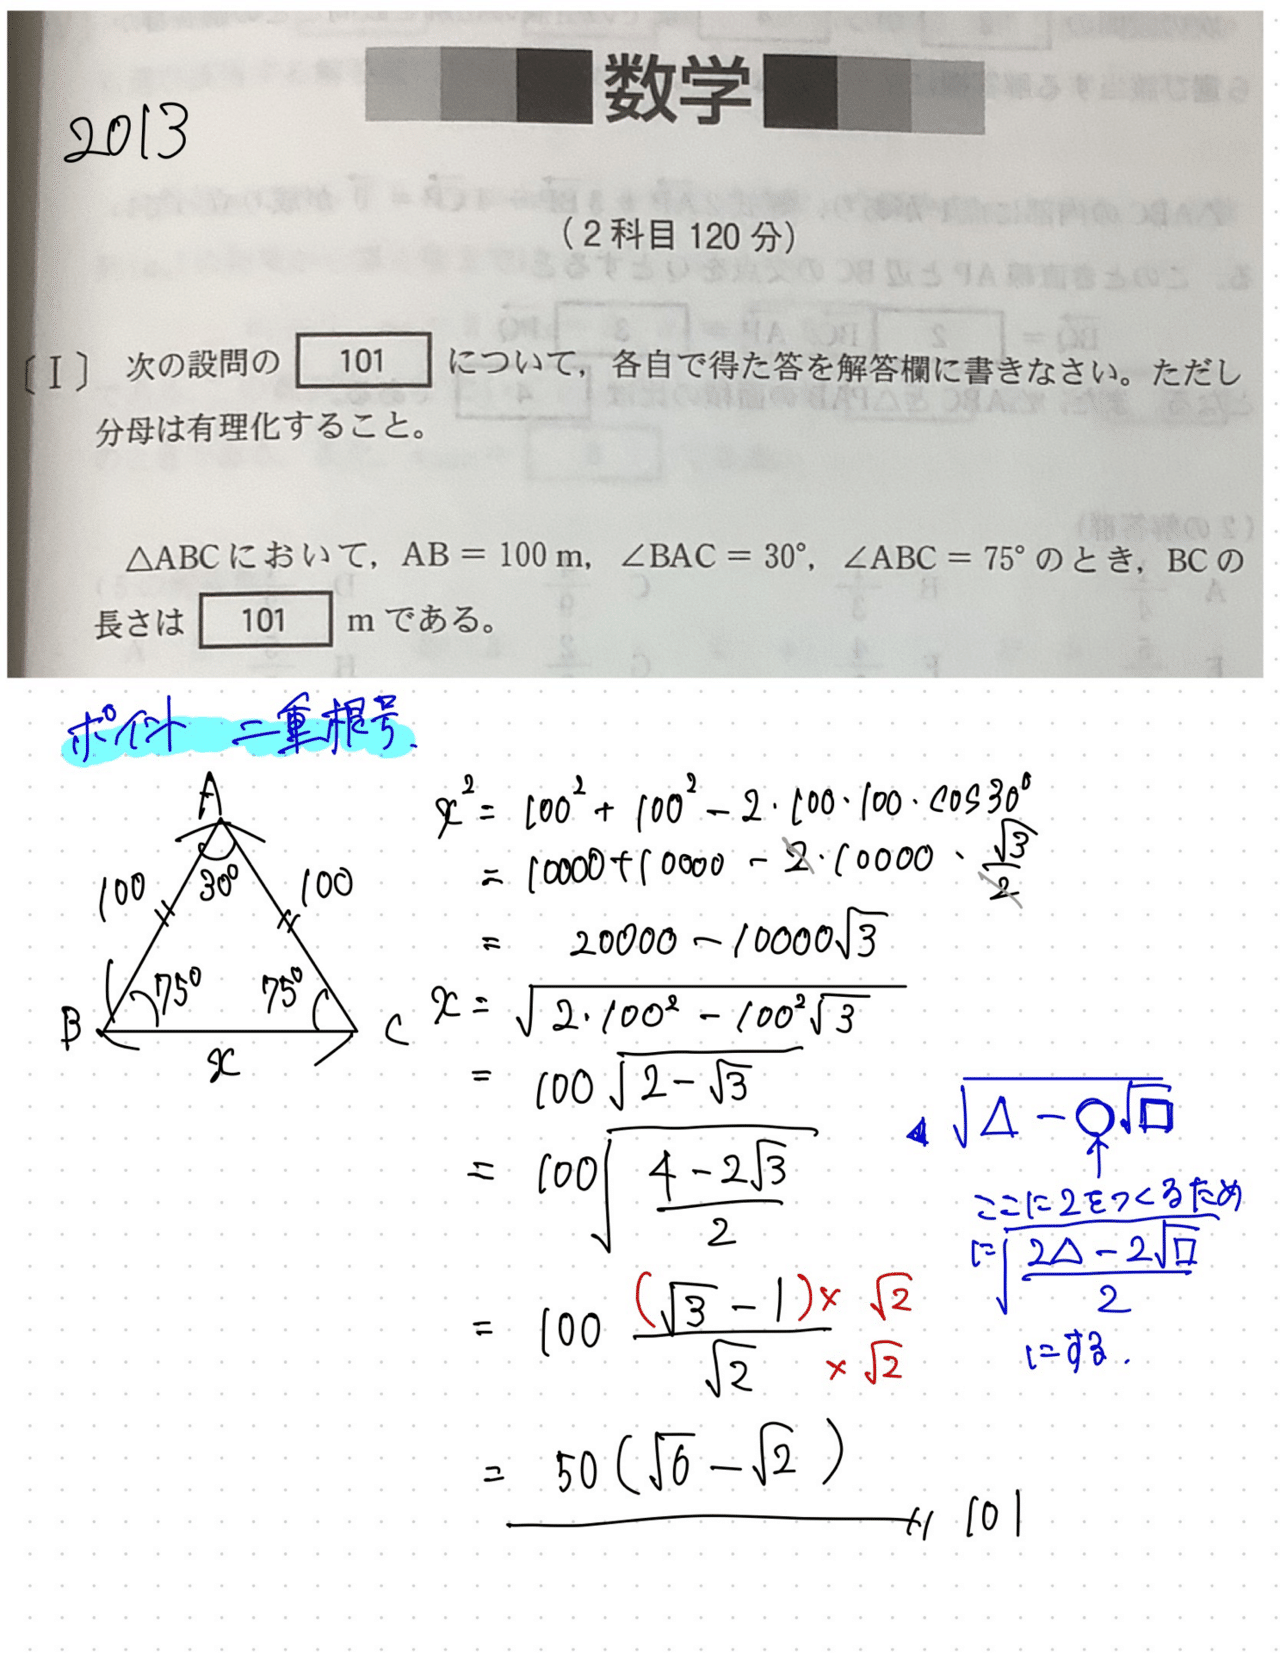 2013
数学
(2科目 120分)
〔Ⅰ〕 次の設問の 101 について，各自で得た答を解答欄に書きなさい。ただし
分母は有理化すること。
△ABCにおいて，AB = 100 m，∠BAC = 30°，∠ABC = 75° のとき，BCの
長さは 101 m である。
ポイント 二重根号.
A
100 30° 100
75° 75°
B x C
x² = 100² + 100² - 2・100・100・cos30°
= 10000 + 10000 - 2・10000・√3/2
= 20000 - 10000√3
x = √(2・100² - 100²√3)
= 100√(2-√3)
= 100√((4-2√3)/2)
◀ √(△-○√□)
↑
ここに2をつくるため
に √((2△-2√□)/2)
にする.
= 100 (√3-1)×√2 / √2 ×√2
= 50(√6-√2)
101